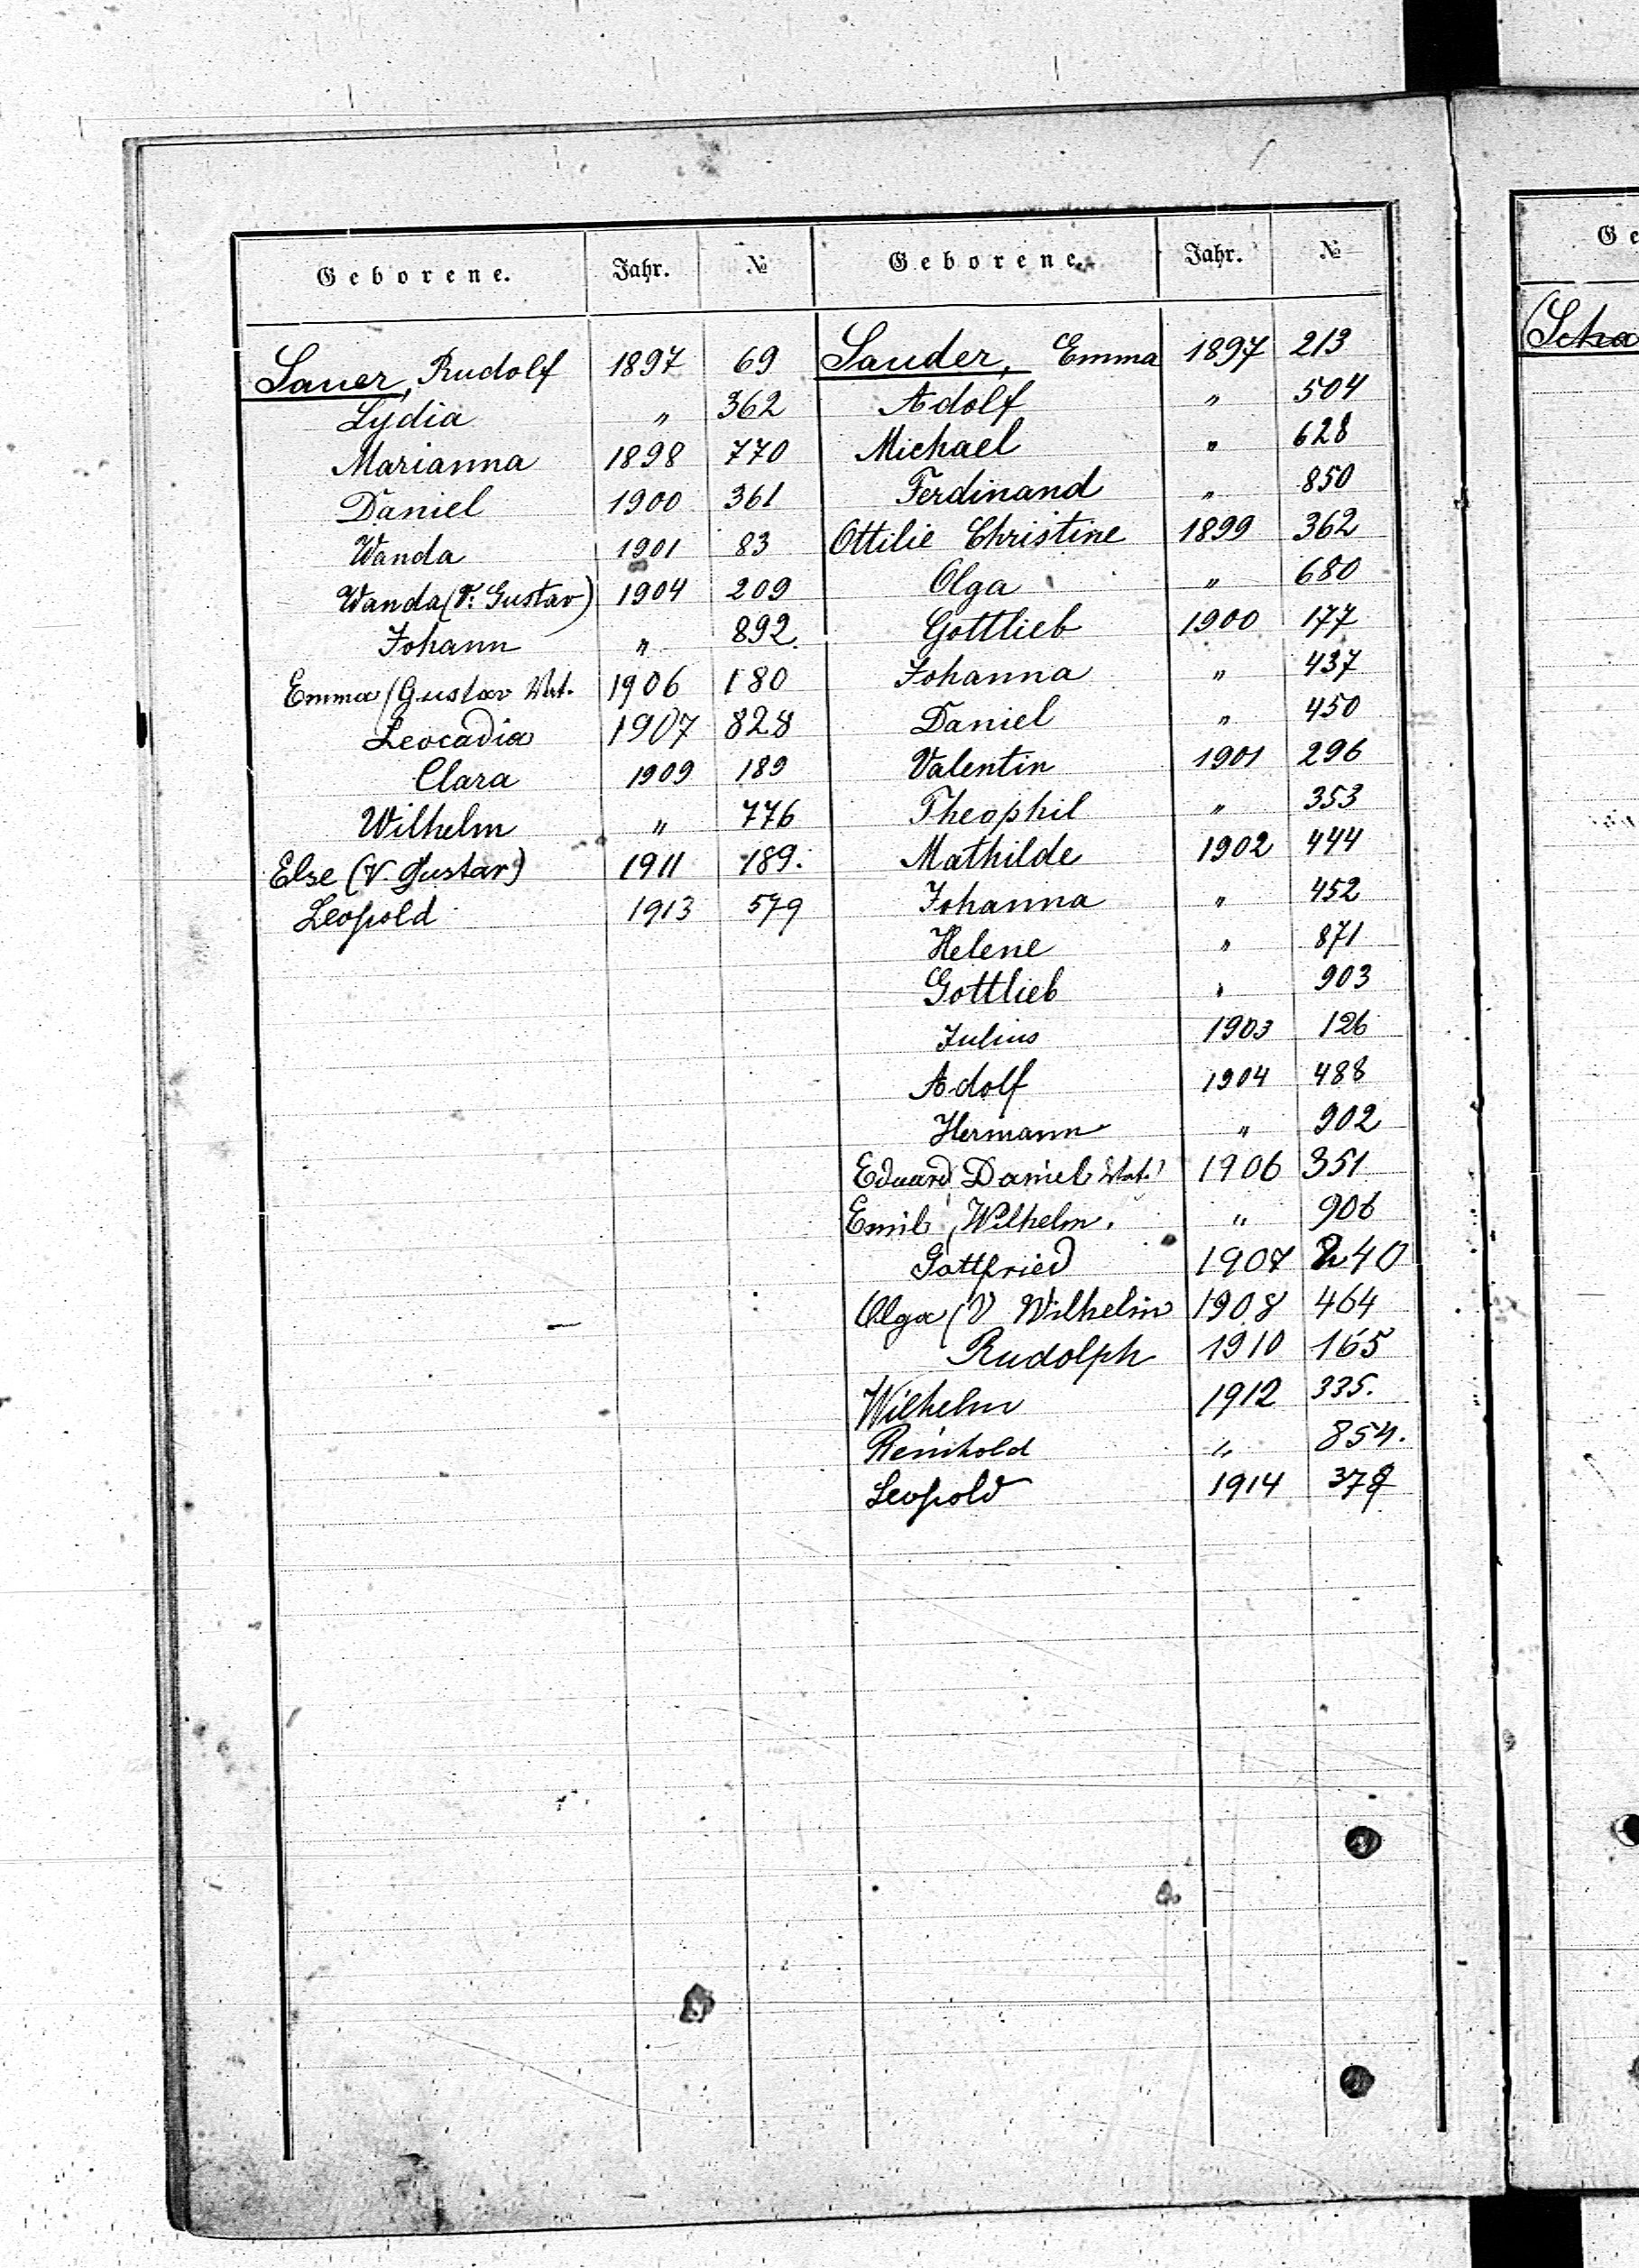 Geborene. Jahr. №
Sauer, Rudolf 1897 69
Lydia " 362
Marianna 1898 770
Daniel 1900 361
Wanda 1901 83
Wanda (V: Gustav) 1904 209
Johann " 892.
Emma (Gustav Vat. 1906 180
Leocadia 1907 828
Clara 1909 189
Wilhelm " 776
Else (V. Gustav) 1911 189.
Leopold 1913 579
Geborene. Jahr. №
Sauder, Emma 1897 213
Adolf " 504
Michael " 628
Ferdinand " 850
Ottilie Christine 1899 362
Olga " 680
Gottlieb 1900 177
Johanna " 437
Daniel " 450
Valentin 1901 296
Theophil " 353
Mathilde 1902 444
Johanna " 452
Helene " 871
Gottlieb " 903
Julius 1903 126
Adolf 1904 488
Hermann " 902
Eduard Daniel Vat. 1906 351
Emil, Wilhelm. " 906
Gottfried 1907 240
Olga (V Wilhelm 1908 464
Rudolph 1910 165
Wilhelm 1912 335.
Reinhold " 854.
Leopold 1914
Ge
Scha